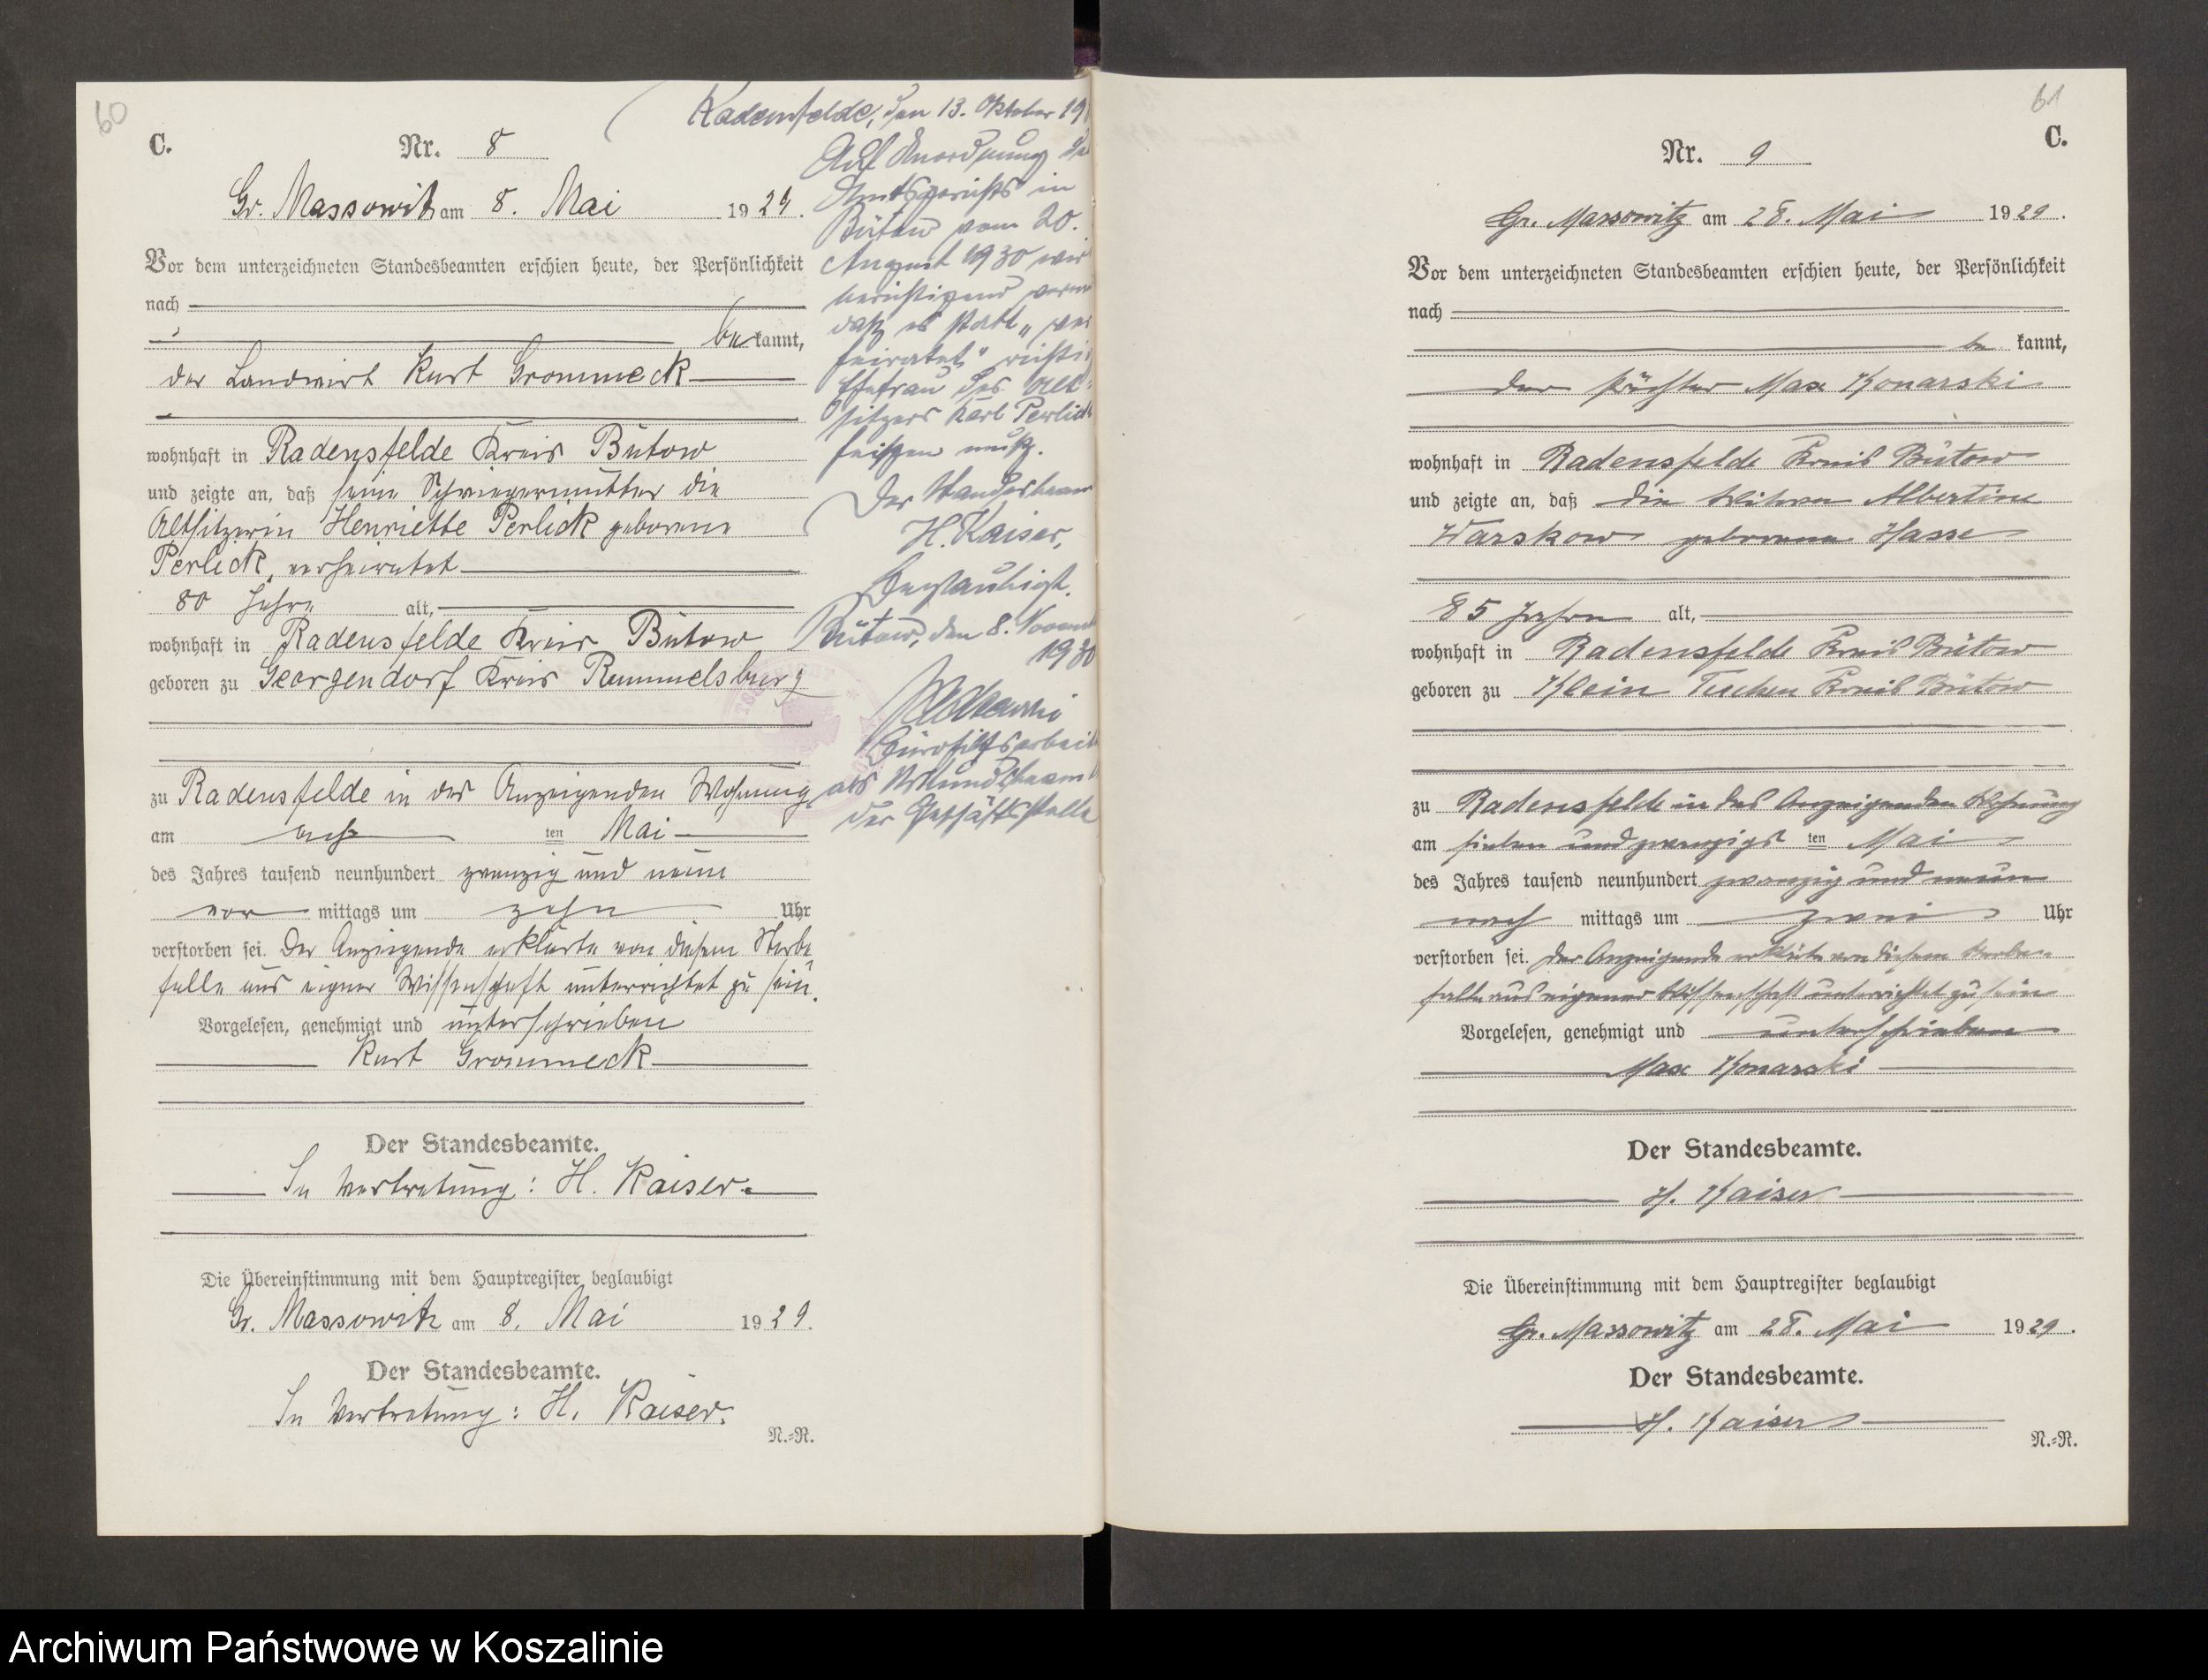 60
C.
Nr. 8
Gr. Massowitz am 8. Mai 1929.
Vor dem unterzeichneten Standesbeamten erschien heute, der Persönlichkeit
nach
be kannt,
der Landwirt Kurt Grommeck
wohnhaft in Radensfelde Kreis Bütow
und zeigte an, daß seine Schwiegermutter die
Altsitzerin Henriette Perlick geborene
Perlick, verheiratet
80 Jahre alt,
wohnhaft in Radensfelde Kreis Bütow
geboren zu Georgendorf Kreis Rummelsburg
zu Radensfelde in des Anzeigenden Wohnung
am acht ten Mai
des Jahres tausend neunhundert zwanzig und neun
vor mittags um zehn Uhr
verstorben sei. Der Anzeigende erklärte von diesem Sterbe
falle aus eigner Wissenschaft unterrichtet zu sein.
Vorgelesen, genehmigt und unterschrieben
Kurt Grommeck
Der Standesbeamte.
In Vertretung: H. Kaiser.
Die Übereinstimmung mit dem Hauptregister beglaubigt
Gr. Massowitz am 8. Mai 1929.
Der Standesbeamte.
In Vertretung: H. Kaiser.
N.=R.
Radensfelde, den 13. Oktober 19
Auf Anordnung de
Amtsgerichts in
Bütow vom 20.
August 1930 wir
berichtigend verm
daß es statt „ver
heiratet" richti
Ehefrau des Alt=
sitzers Karl Perlick
heißen muß.
Der Standesbeam
H. Kaiser,
Beglaubigt.
Bütow, den 8. Novem
1930
Bürohilfsarbeit
als Urkundsbeam
der Geschäftsstelle
61
C.
Nr. 9
Gr. Massowitz am 28. Mai 1929.
Vor dem unterzeichneten Standesbeamten erschien heute, der Persönlichkeit
nach
be kannt,
der Pächter Max Konarski
wohnhaft in Radensfelde Kreis Bütow
und zeigte an, daß die Witwe Albertine
Warskow geborene Hasse
85 Jahre alt,
wohnhaft in Radensfelde Kreis Bütow
geboren zu Klein Tuchen Kreis Bütow
zu Radensfelde in des Anzeigenden Wohnung
am sieben und zwanzigs ten Mai
des Jahres tausend neunhundert zwanzig und neun
nach mittags um zwei Uhr
verstorben sei. Der Anzeigende erklärte von diesem Sterbe=
falle aus eigener Wissenschaft unterrichtet zu sein
Vorgelesen, genehmigt und unterschrieben
Max Konarski
Der Standesbeamte.
H. Kaiser
Die Übereinstimmung mit dem Hauptregister beglaubigt
Gr. Massowitz am 28. Mai 1929.
Der Standesbeamte.
H. Kaiser
N.=R.
Archiwum Państwowe w Koszalinie